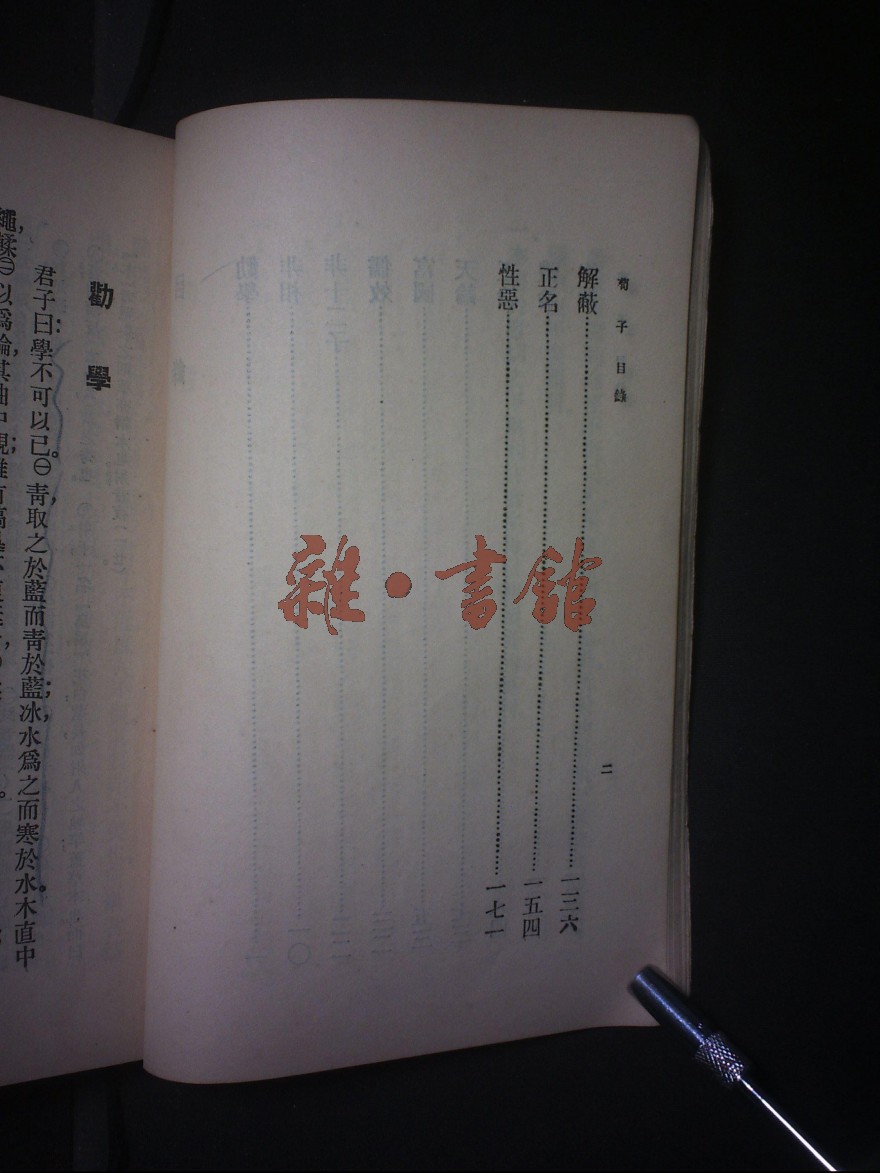 荀子目錄
二
解蔽……一三六
正名……一五四
性惡……一七一
雜·書館
勸學
君子曰:學不可以已。㊀青,取之於藍,而青於藍;冰,水爲之,而寒於水。木直中
繩,